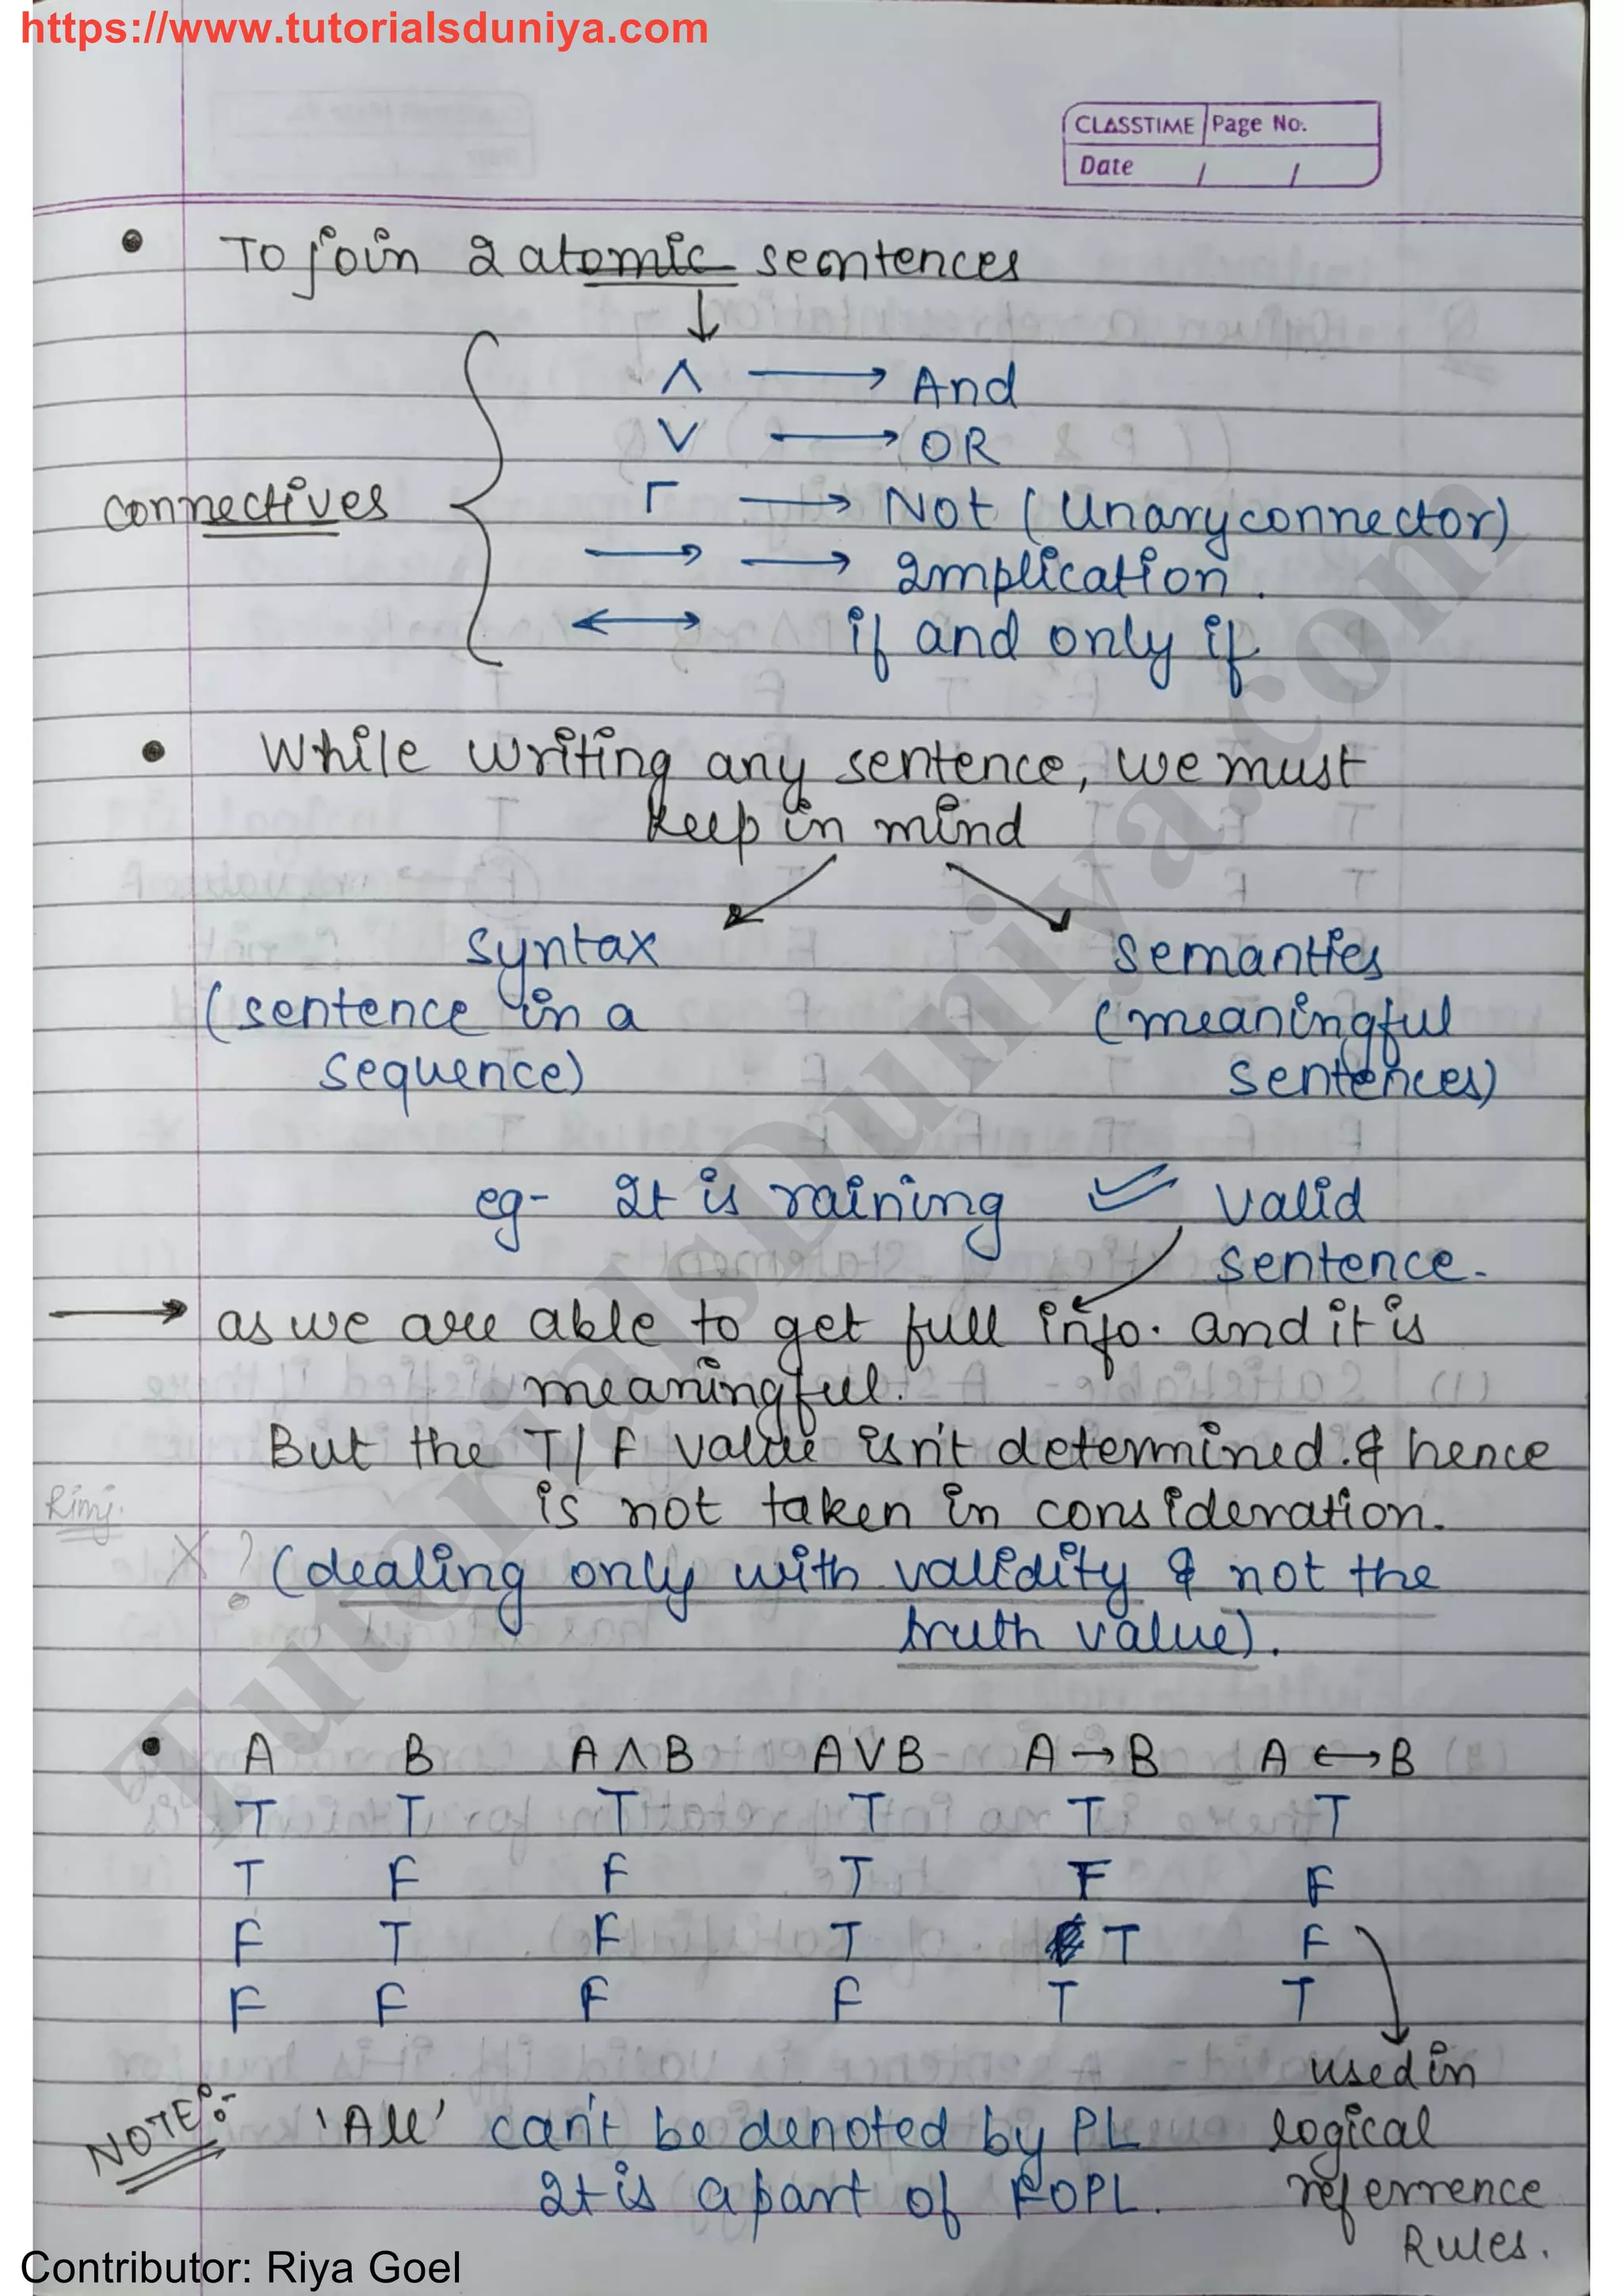 https://www.tutorialsduniya.com
CLASSTIME Page No.
Date / /
• To join 2 atomic sentences
↓
∧ → And
∨ → OR
connectives
Γ → Not (Unary connector)
→ → Implication.
↔ if and only if
• While writing any sentence, we must
keep in mind
syntax semantics
(sentence in a (meaningful
sequence) sentences)
eg- It is raining valid
sentence.
→ as we are able to get full info. and it is
meaningful.
But the T/F value isn't determined. & hence
is not taken in consideration.
X ?
(dealing only with validity & not the
truth value).
• A B A ∧ B A V B A → B A ↔ B
T T T T T T
T F F T F F
F T F T T F
F F F F T T
used in
NOTE:- 'All' can't be denoted by PL logical
It is a part of FOPL. referrence
Rules.
TutorialsDuniya.com
Contributor: Riya Goel